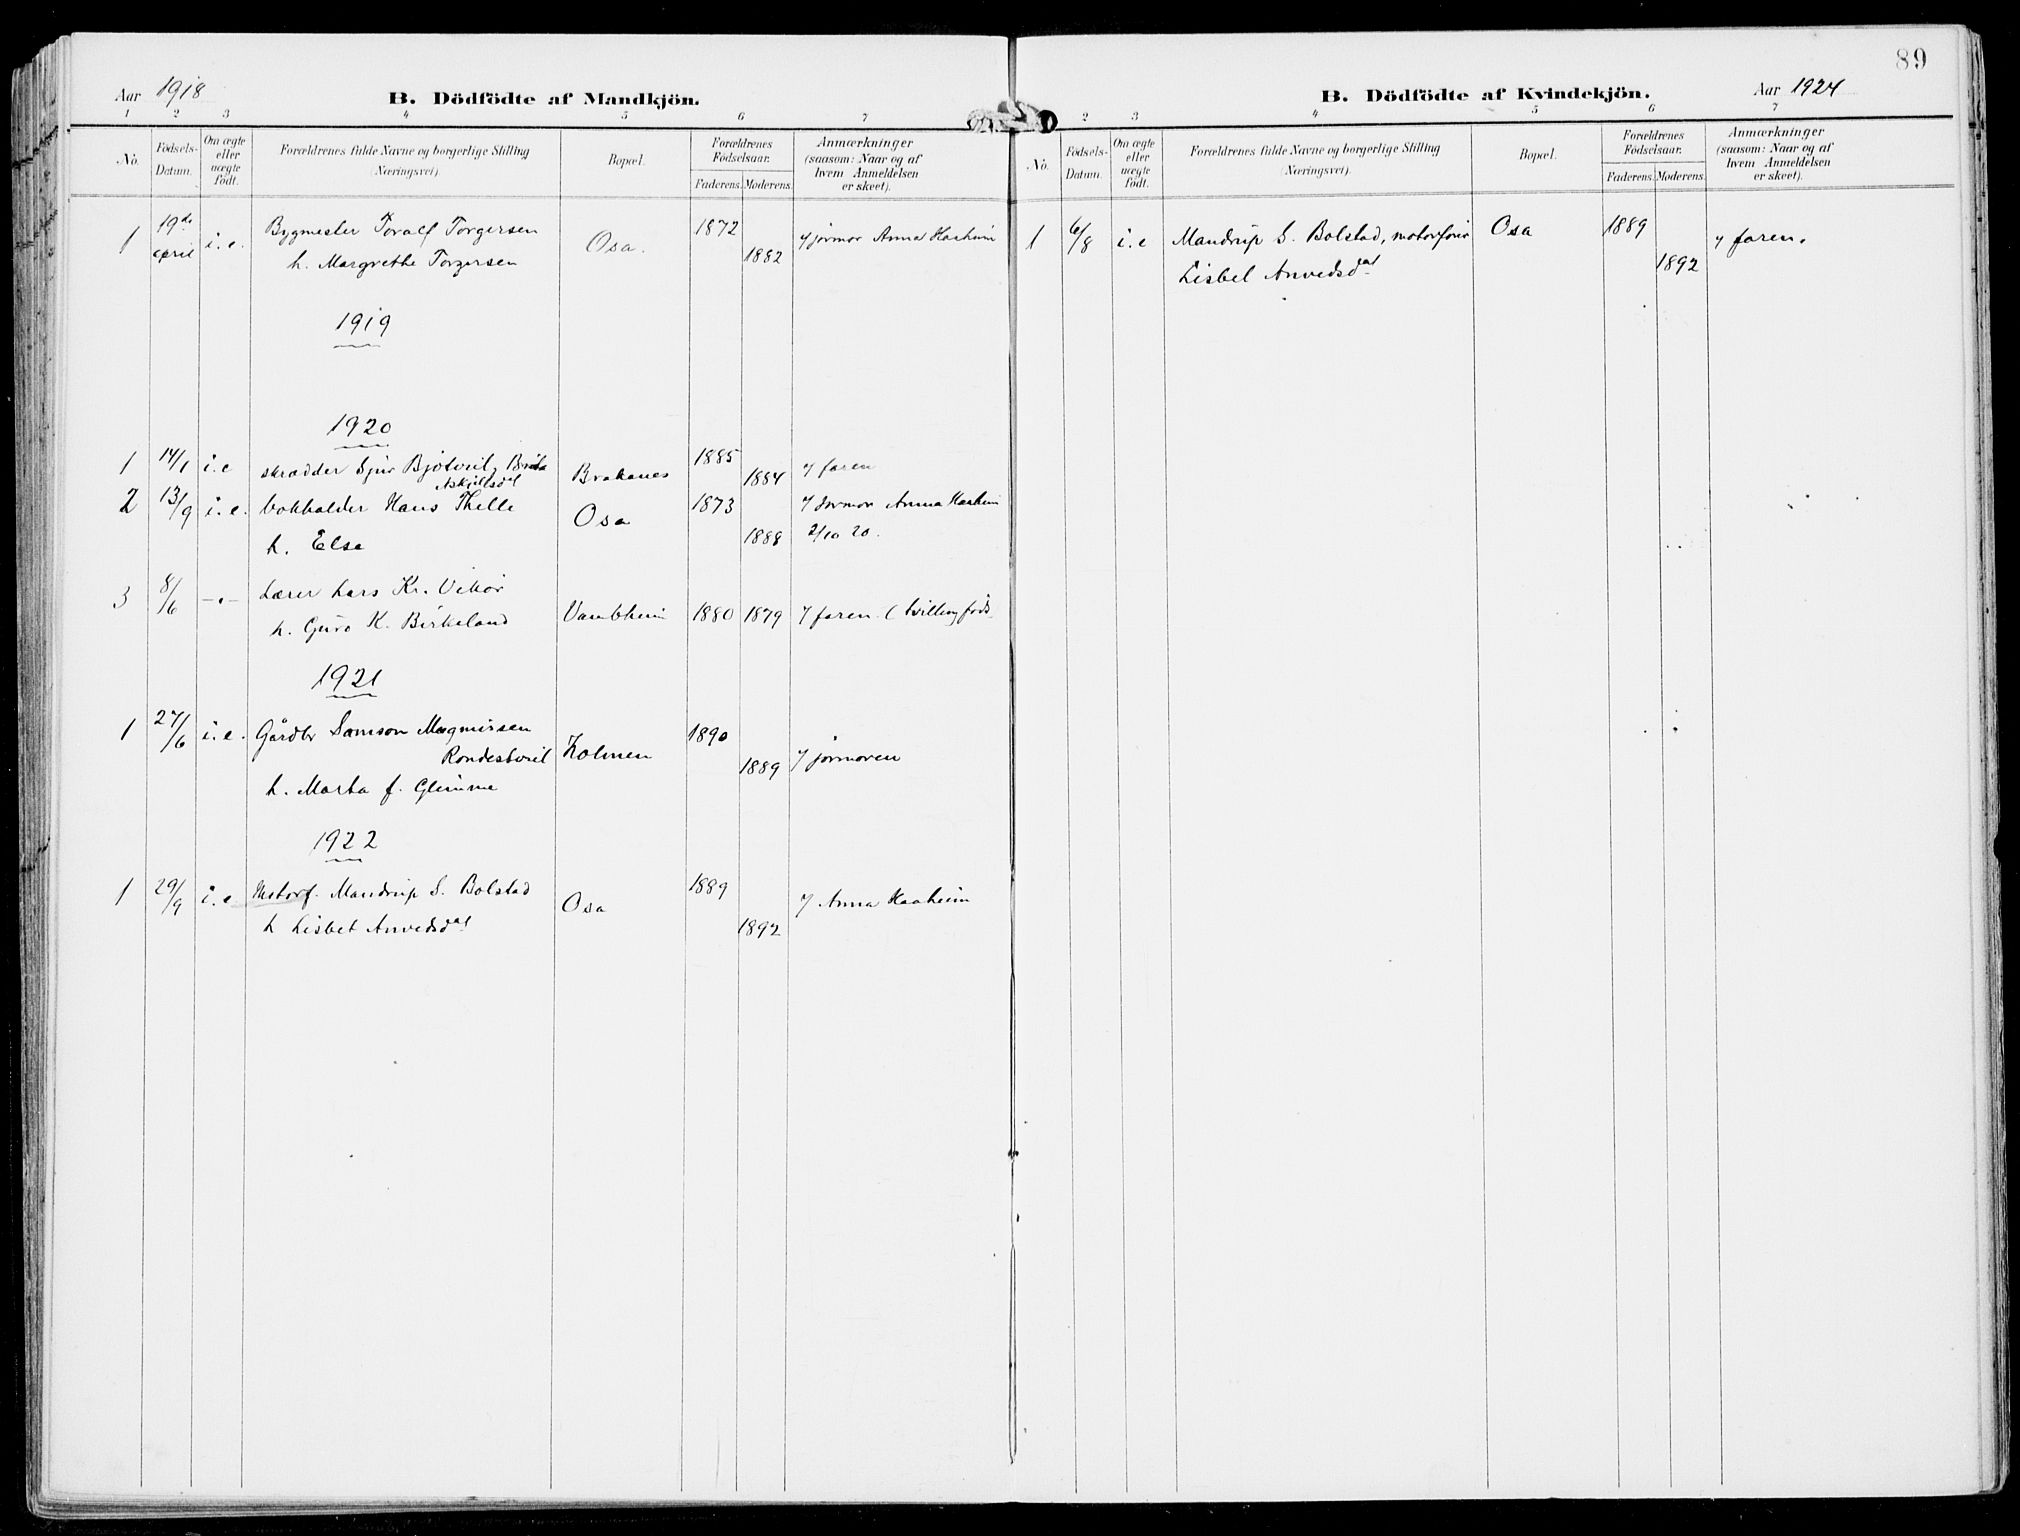 Aar 1918
B. Dödfödte af Mandkjön.
1 2 3 4 5 6 7
No. Födsels-Datum. Om ægte eller uægte födt. Forældrenes fulde Navne og borgerlige Stilling (Næringsvei). Bopæl. Forældrenes Födselsaar. Faderens. Moderens. Anmærkninger (saasom: Naar og af hvem Anmeldelsen er skeet).
1 19de april i. e. Bygmester Toralf Torgersen Osa. 1872 1882 v/ jormor Anna Haaheim
h. Margrethe Torgersen
1919
1920
1 14/1 i. e skrædder Sjur Bjotveit, Brita Brakanes 1885 1884 v/ faren
Askjellsdt
2 13/9 i. e. bokholder Hans Thelle Osa 1873 v/ Jormor Anna Haaheim
h. Else 1888 2/10 20.
3 8/6 -"- Lærer Lars Kr. Vikør
h. Guro K. Birkeland 1880 1879 v/ faren. (tvillingføds
1921
1 27/6 i. e. Gårdbr Samson Magnussen 1890
Rondestveit Holmen 1889 v/ jormoren
h. Marta f. Glimme
1922
1 29/9 i. e Motorf. Mandrup S. Bolstad Osa 1889 v/ Anna Haaheim
h Lisbet Anvedsdat 1892
89
B. Dödfödte af Kvindekjön.
Aar 1924
2 3 4 5 6 7
No. Födsels-Datum. Om ægte eller uægte födt. Forældrenes fulde Navne og borgerlige Stilling (Næringsvei). Bopæl. Forældrenes Födselsaar. Faderens. Moderens. Anmærkninger (saasom: Naar og af hvem Anmeldelsen er skeet).
1 6/8 i. e Mandrup S. Bolstad, motorfører Osa 1889 v/ faren.
Lisbet Anvedsdat 1892